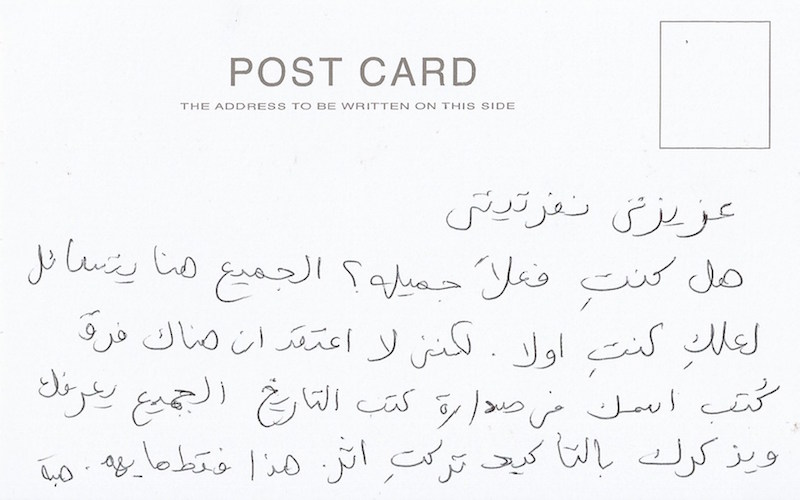 POST CARD
THE ADDRESS TO BE WRITTEN ON THIS SIDE
عزيزتي نفرتيتي
هل كنتِ فعلاً جميله؟ الجميع هنا يتسائل
لعلكِ كنتِ اولا . لكنني لا اعتقد ان هناك فرق
كُتب اسمك في صدارة كتب التاريخ الجميع يعرفك
ويذكرك بالتأكيد تركتِ اثر. هذا فقط ما يهم. هبة